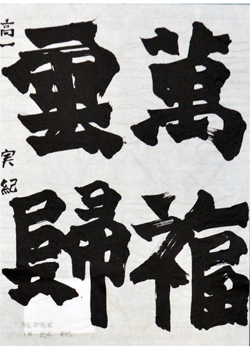 萬福
雲歸
高一 実紀